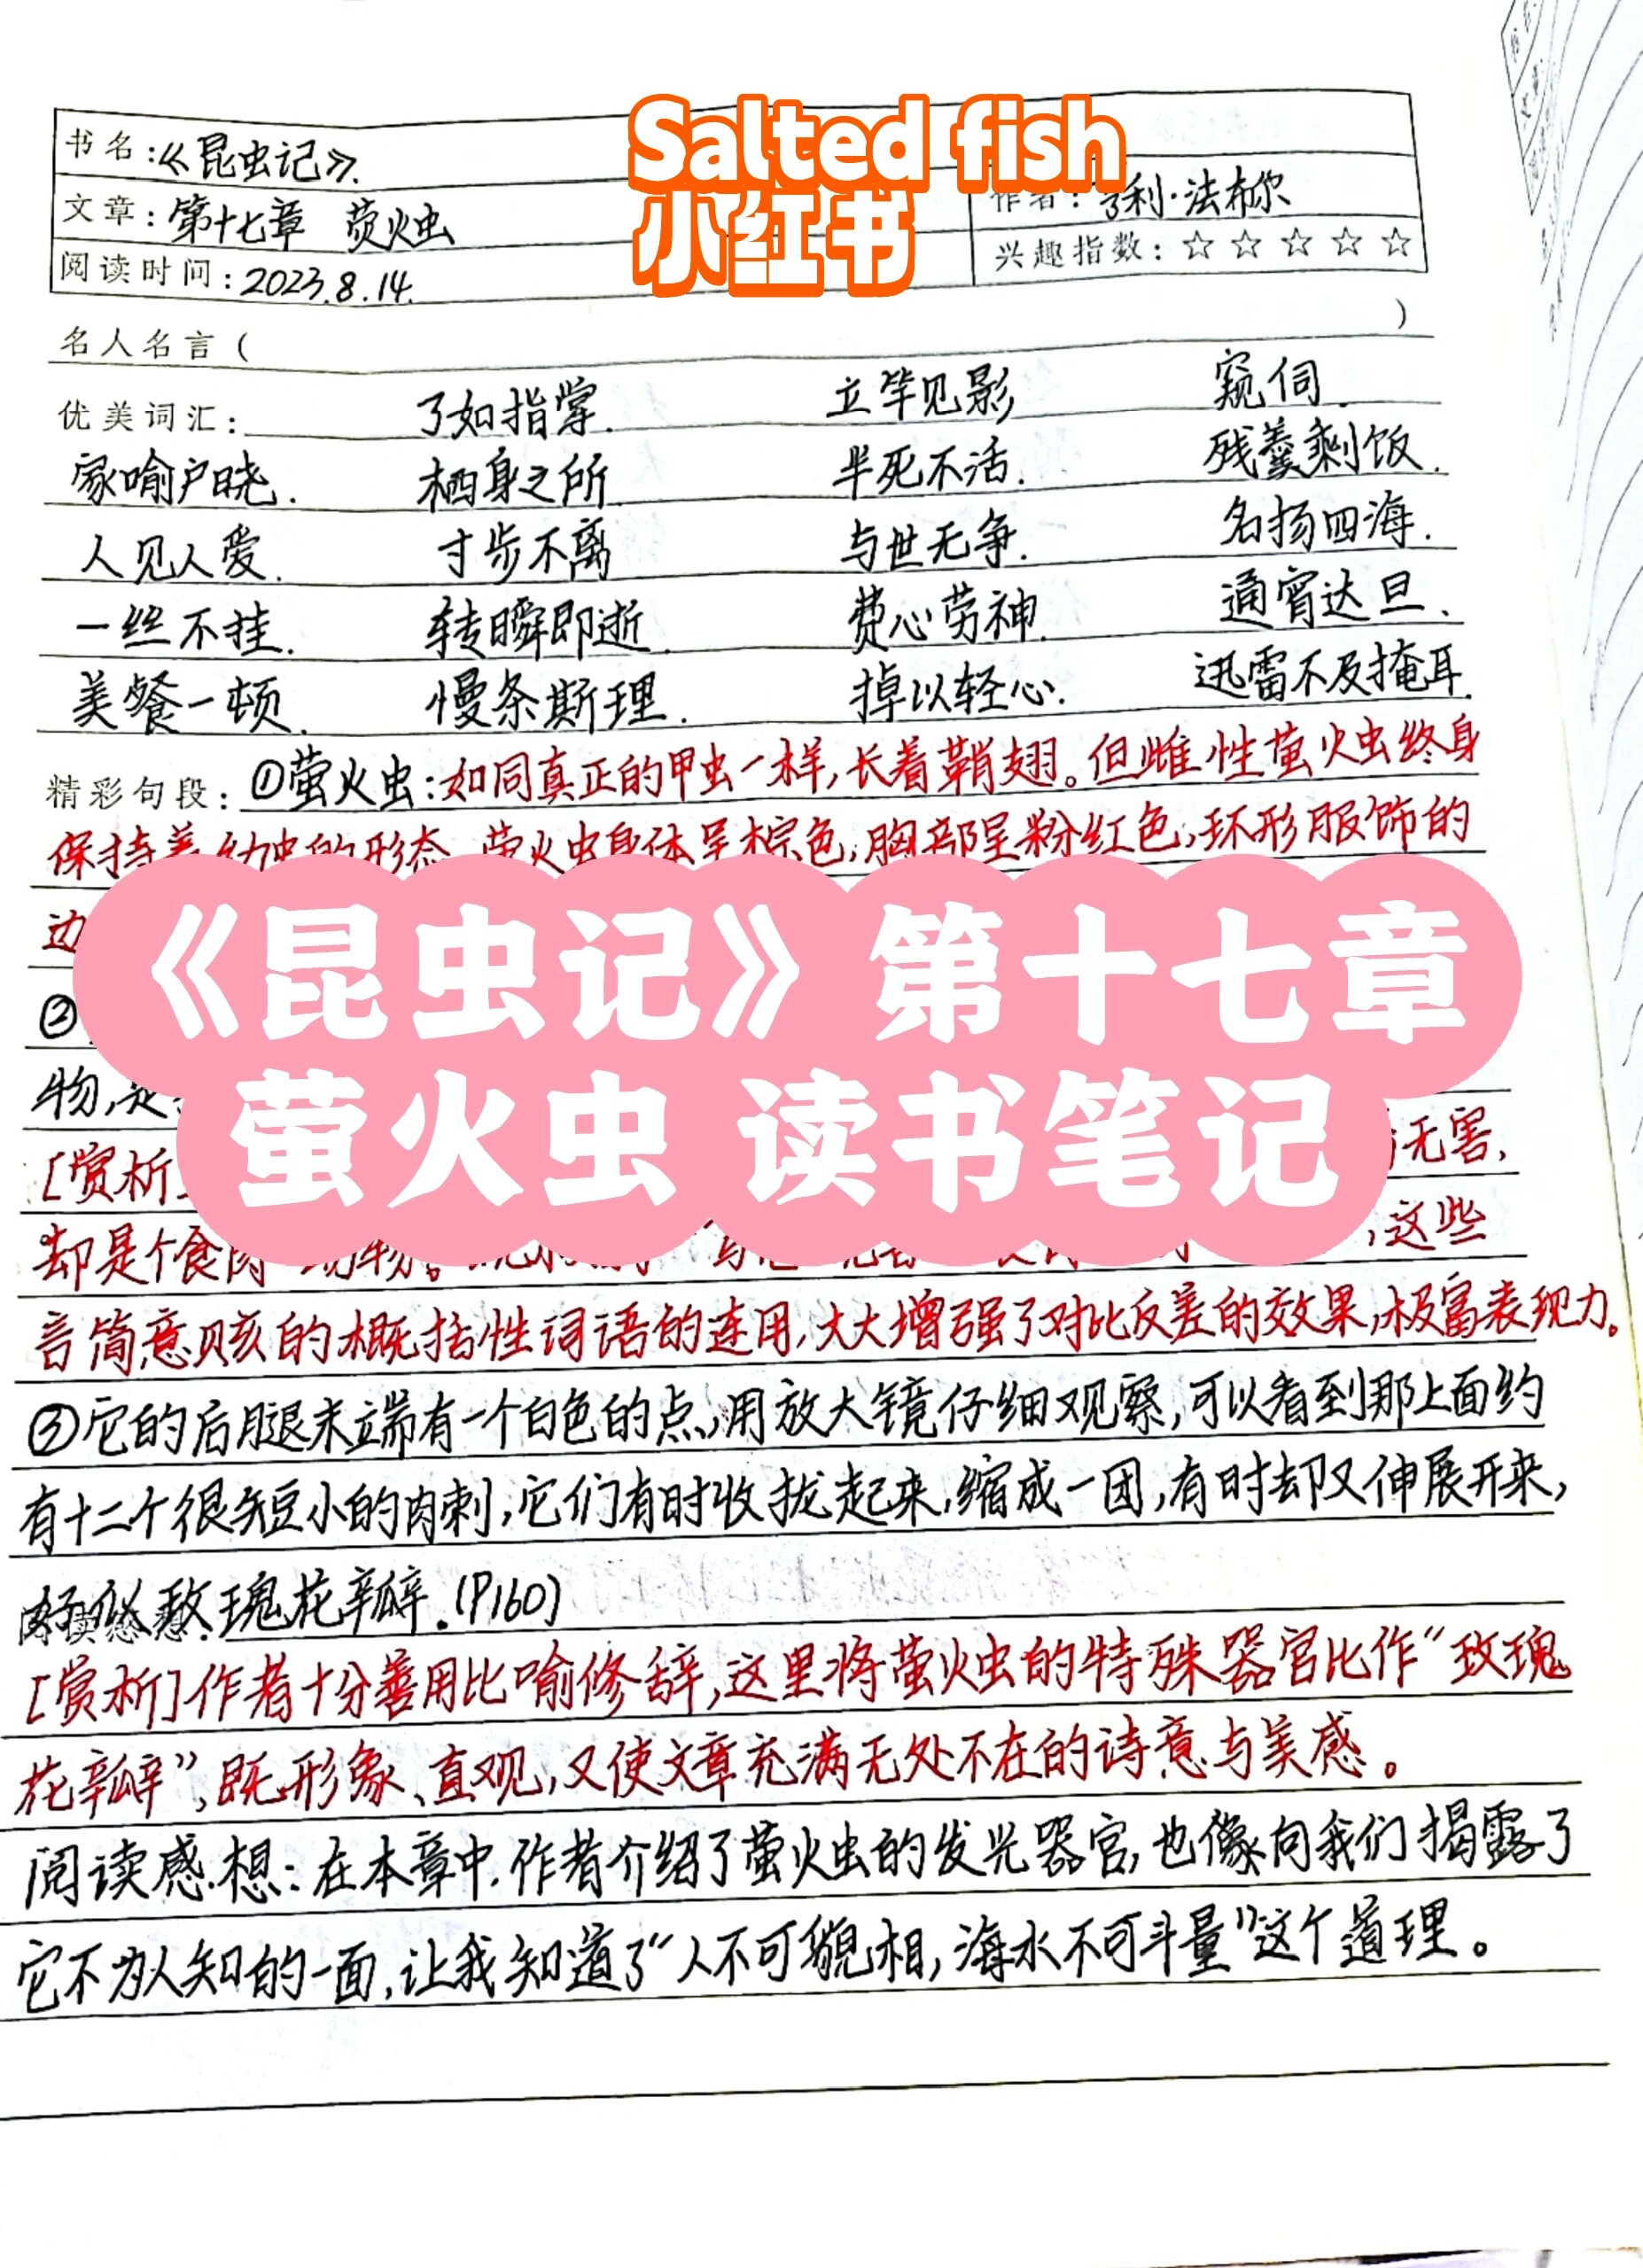 Salted fish
小红书
书名:《昆虫记》.
文章:第十七章 萤火虫
作者:亨利·法布尔
阅读时间:2023.8.14.
兴趣指数:☆☆☆☆☆
名人名言( )
优美词汇: 了如指掌. 立竿见影 窥伺.
家喻户晓. 栖身之所 半死不活. 残羹剩饭.
人见人爱. 寸步不离 与世无争. 名扬四海.
一丝不挂. 转瞬即逝. 费心劳神. 通宵达旦.
美餐一顿. 慢条斯理. 掉以轻心. 迅雷不及掩耳.
精彩句段:①萤火虫:如同真正的甲虫一样,长着鞘翅。但雌性萤火虫终身
保持着幼虫的形态.萤火虫身体呈棕色,胸部呈粉红色,环形服饰的
边
《昆虫记》第十七章
②
物,是
萤火虫 读书笔记
[赏析 无害,
却是个食肉动物。 ,这些
言简意赅的概括性词语的连用,大大增强了对比反差的效果,极富表现力。
③它的后腿末端有一个白色的点,用放大镜仔细观察,可以看到那上面约
有十二个很短小的肉刺,它们有时收拢起来,缩成一团,有时却又伸展开来,
阅读感想:好似玫瑰花瓣.(P160)
[赏析]作者十分善用比喻修辞,这里将萤火虫的特殊器官比作“玫瑰
花瓣”,既形象、直观,又使文章充满无处不在的诗意与美感。
阅读感想:在本章中,作者介绍了萤火虫的发光器官,也像向我们揭露了
它不为人知的一面,让我知道了“人不可貌相,海水不可斗量”这个道理。